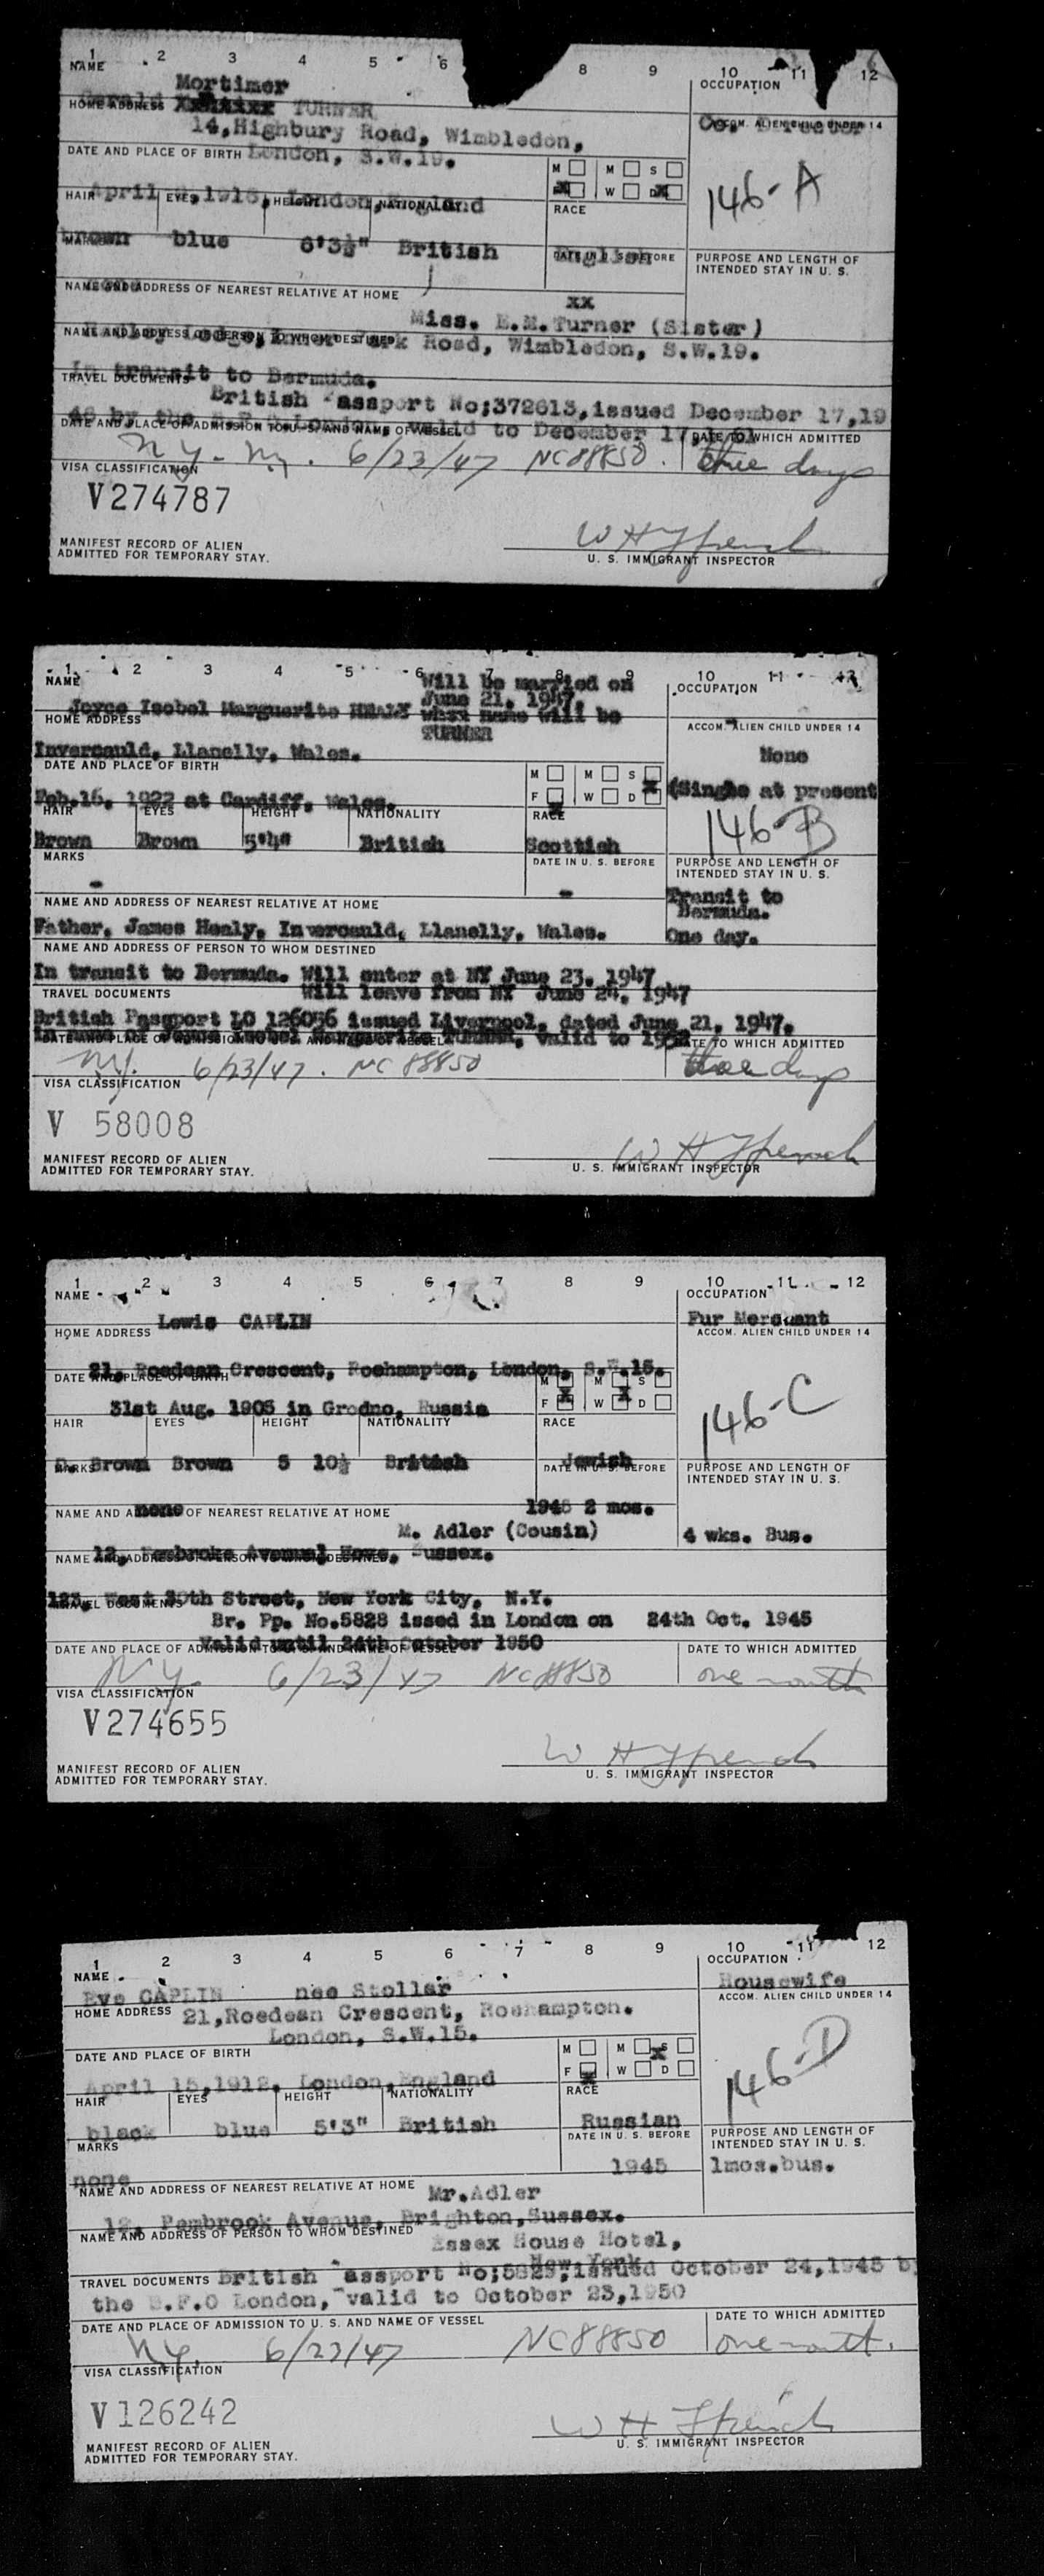 1 2 3 4 5 6 8 9 10 11 12
NAME
OCCUPATION
Mortimer
HOME ADDRESS TURNER
ACCOM. ALIEN CHILD UNDER 14
14,Highbury Road, Wimbledon,
DATE AND PLACE OF BIRTH London, S.W.19.
M M S
W D
146-A
HAIR EYES HEIGHT NATIONALITY
April 1918, London, England
RACE
brown blue 6'3½" British
English
MARKS
DATE IN U. S. BEFORE
PURPOSE AND LENGTH OF
INTENDED STAY IN U. S.
NAME AND ADDRESS OF NEAREST RELATIVE AT HOME
xx
Miss. E.M.Turner (Sister)
NAME AND ADDRESS OF PERSON TO WHOM DESTINED
Road, Wimbledon, S.W.19.
In transit to Bermuda.
TRAVEL DOCUMENTS
British Passport No;372613,issued December 17,19
46 by the London, valid to December 17,
DATE AND PLACE OF ADMISSION TO U. S. AND NAME OF VESSEL
DATE TO WHICH ADMITTED
N.Y. N.Y. 6/23/47 NC88850 three days
VISA CLASSIFICATION
V274787
MANIFEST RECORD OF ALIEN
ADMITTED FOR TEMPORARY STAY.
U. S. IMMIGRANT INSPECTOR
1 2 3 4 5 6 7 8 9 10 11 12
NAME
Will be married on
OCCUPATION
June 21, 1947,
Joyce Isobel Marguerite HEALY when name will be
HOME ADDRESS
TURNER
ACCOM. ALIEN CHILD UNDER 14
Invercauld, Llanelly, Wales.
None
DATE AND PLACE OF BIRTH
M M S
F W D
(Single at present
Feb.16, 1922 at Cardiff, Wales.
HAIR EYES HEIGHT NATIONALITY
RACE
146-B
Brown Brown 5'4" British
Scottish
MARKS
DATE IN U. S. BEFORE
PURPOSE AND LENGTH OF
INTENDED STAY IN U. S.
- -
Transit to
Bermuda.
NAME AND ADDRESS OF NEAREST RELATIVE AT HOME
Father, James Healy, Invercauld, Llanelly, Wales.
One day.
NAME AND ADDRESS OF PERSON TO WHOM DESTINED
In transit to Bermuda. Will enter at NY June 23, 1947
TRAVEL DOCUMENTS Will leave from NY June 24, 1947
British Passport LO 126056 issued Liverpool, dated June 21, 1947.
valid to 1952
DATE AND PLACE OF ADMISSION TO U. S. AND NAME OF VESSEL
DATE TO WHICH ADMITTED
N.Y. 6/23/47. NC 88850 three days
VISA CLASSIFICATION
V 58008
MANIFEST RECORD OF ALIEN
ADMITTED FOR TEMPORARY STAY.
U. S. IMMIGRANT INSPECTOR
1 2 3 4 5 6 7 8 9 10 11 12
NAME
OCCUPATION
Lewis CAPLIN
Fur Merchant
HOME ADDRESS
ACCOM. ALIEN CHILD UNDER 14
21, Roedean Crescent, Roehampton, London, S.W.15.
DATE AND PLACE OF BIRTH
M M S
F W D
31st Aug. 1905 in Grodno, Russia
146-C
HAIR EYES HEIGHT NATIONALITY
RACE
D. Brown Brown 5 10½ British
Jewish
MARKS
DATE IN U. S. BEFORE
PURPOSE AND LENGTH OF
INTENDED STAY IN U. S.
none
1946 2 mos.
NAME AND ADDRESS OF NEAREST RELATIVE AT HOME
M. Adler (Cousin)
4 wks. Bus.
12, Pembroke Avenue, Hove, Sussex.
NAME AND ADDRESS OF PERSON TO WHOM DESTINED
West 30th Street, New York City, N.Y.
TRAVEL DOCUMENTS
Br. Pp. No.5828 issed in London on 24th Oct. 1945
Valid until 24th October 1950
DATE AND PLACE OF ADMISSION TO U. S. AND NAME OF VESSEL
DATE TO WHICH ADMITTED
N.Y. 6/23/47 NC88850 one month
VISA CLASSIFICATION
V274655
MANIFEST RECORD OF ALIEN
ADMITTED FOR TEMPORARY STAY.
U. S. IMMIGRANT INSPECTOR
1 2 3 4 5 6 7 8 9 10 11 12
NAME
OCCUPATION
Eve CAPLIN nee Stollar
Housewife
HOME ADDRESS 21,Roedean Crescent, Roehampton.
ACCOM. ALIEN CHILD UNDER 14
London, S.W.15.
DATE AND PLACE OF BIRTH
M M S
F W D
April 15,1912, London,England
146-D
HAIR EYES HEIGHT NATIONALITY
RACE
black blue 5'3" British
Russian
MARKS
DATE IN U. S. BEFORE
PURPOSE AND LENGTH OF
INTENDED STAY IN U. S.
none
1945
1mos.bus.
NAME AND ADDRESS OF NEAREST RELATIVE AT HOME Mr.Adler
12, Pembrook Avenue, Brighton,Sussex.
NAME AND ADDRESS OF PERSON TO WHOM DESTINED
Essex House Hotel,
New York
TRAVEL DOCUMENTS British Passport No;5829,issued October 24,1945 b
the E.F.O London, valid to October 23,1950
DATE AND PLACE OF ADMISSION TO U. S. AND NAME OF VESSEL
DATE TO WHICH ADMITTED
N.Y. 6/23/47 NC88850 one month.
VISA CLASSIFICATION
V126242
MANIFEST RECORD OF ALIEN
ADMITTED FOR TEMPORARY STAY.
U. S. IMMIGRANT INSPECTOR